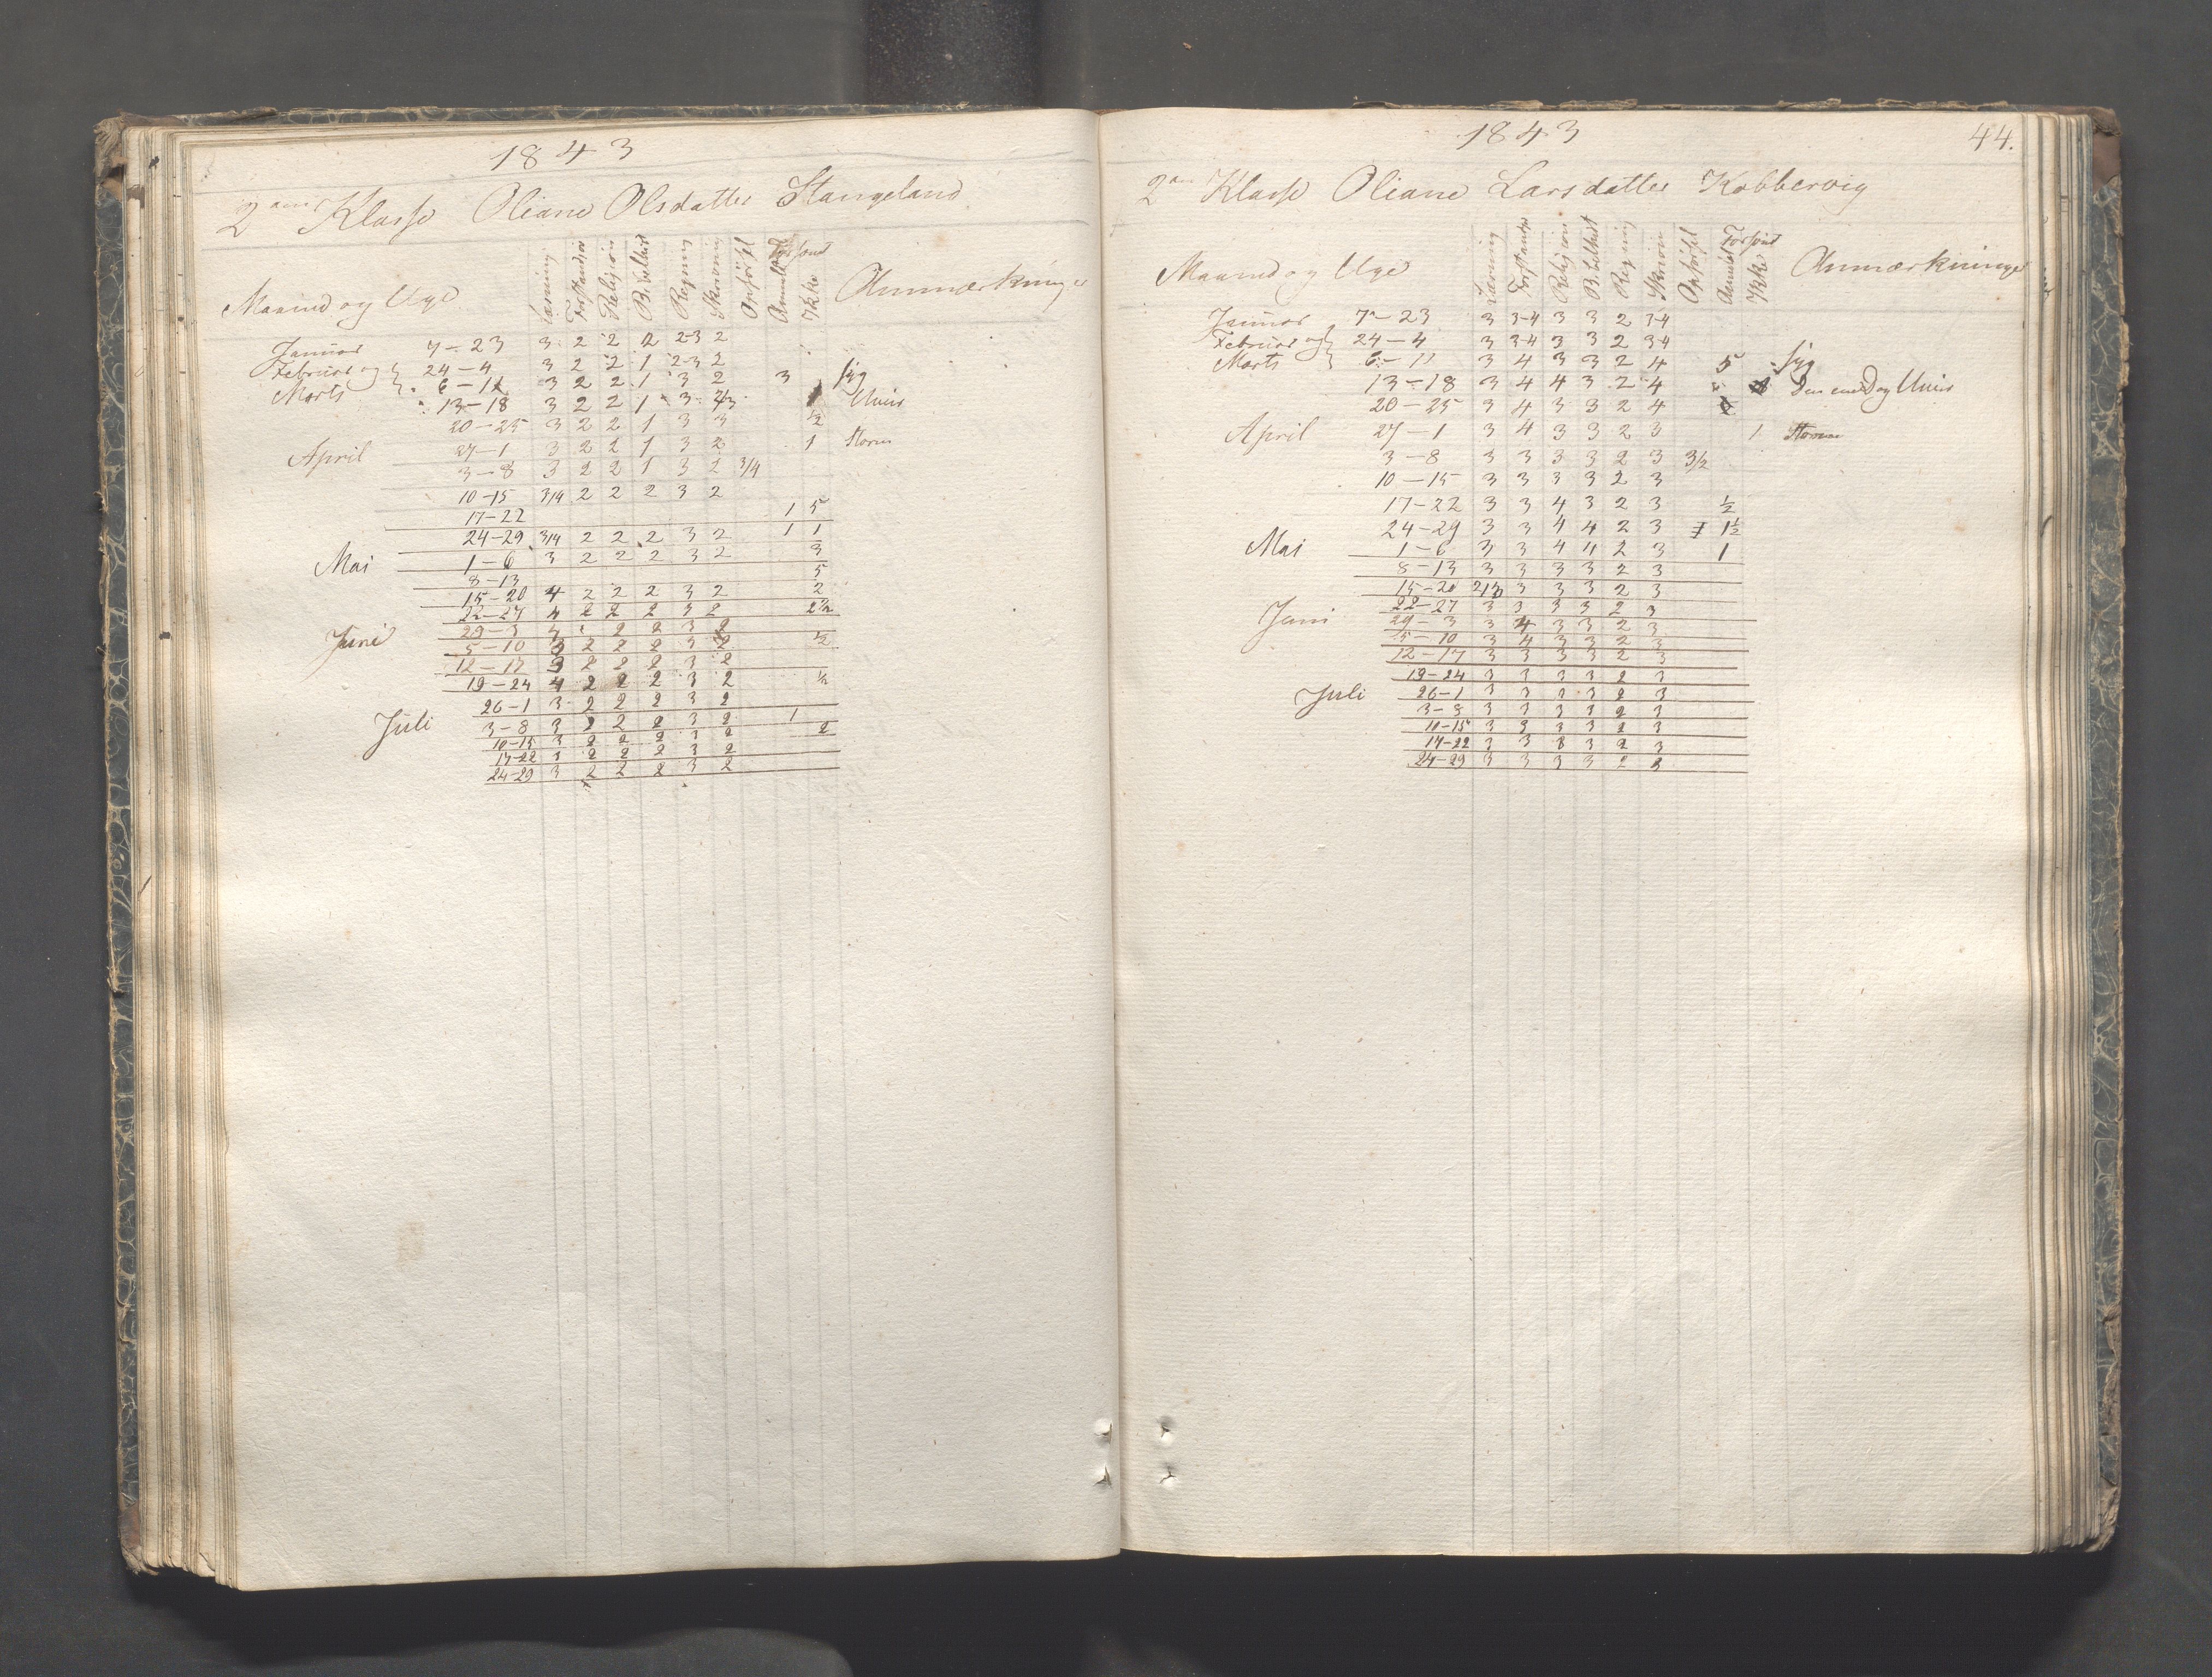 1843
2den Klasse Oliane Olsdatter Stangeland
Maaned og Uge Læsning Forstandser Religion Bibelhist Regning Skrivning Opførsel Forsømt Anmeldt Ikke Anmærkninger
Januar 7-23 3 2 2 2 2-3 2
Februar og 24-4 3 2 2 1 2-3 2
Marts 6-11 3 2 2 1 3 2 3 syg
13-18 3 2 2 1 3 2/3 1 Uveir
20-25 3 2 2 1 3 3 1/2
April 27-1 3 2 2 1 3 2 1 Storm
3-8 3 2 2 1 3 2 3/4
10-15 3/4 2 2 2 3 2
17-22 1 5
24-29 3/4 2 2 2 3 2 1 1
Mai 1-6 3 2 2 2 3 2 3
8-13 5
15-20 4 2 2 2 3 2 2
22-27 4 2 2 2 3 2 2 1/2
Juni 29-3 4 2 2 3 2
5-10 3 2 2 2 3 2 1/2
12-17 3 2 2 2 3 2
19-24 4 2 2 2 3 2 1/2
26-1 3 2 2 2 3 2
Juli 3-8 3 2 2 2 3 2 1
10-15 3 2 2 2 3 2 2
17-22 3 2 2 2 3 2
24-29 3 2 2 2 3 2
1843 44.
2den Klasse Oliane Larsdatter Kobbervig
Maaned og Uge Læsning Forstandser Religion Bibelhist Regning Skrivn Opførsel Forsømt Anmeldt Ikke Anmærkninger
Januar 7-23 3 3-4 3 3 2 3-4
Februar og 24-4 3 3-4 3 3 2 3-4
Marts 6-11 3 4 3 3 2 4 5 syg
13-18 3 4 4 3 2 4 Den ene Dag Uveir
20-25 3 4 3 3 2 4
April 27-1 3 4 3 3 2 3 1 Storm
3-8 3 3 3 3 2 3 3/2
10-15 3 3 3 3 2 3
17-22 3 3 4 3 2 3 1/2
24-29 3 3 4 4 2 3 1 1/2
Mai 1-6 3 3 4 4 2 3 1
8-13 3 3 3 3 2 3
15-20 2/3 3 3 3 2 3
22-27 3 3 3 3 2 3
Juni 29-3 3 4 3 3 2 3
5-10 3 4 3 3 2 3
12-17 3 3 3 3 2 3
19-24 3 3 3 3 2 3
Juli 26-1 3 3 3 3 2 3
3-8 3 3 3 3 2 3
10-15 3 3 3 3 2 3
17-22 3 3 3 3 2 3
24-29 3 3 3 3 2 3